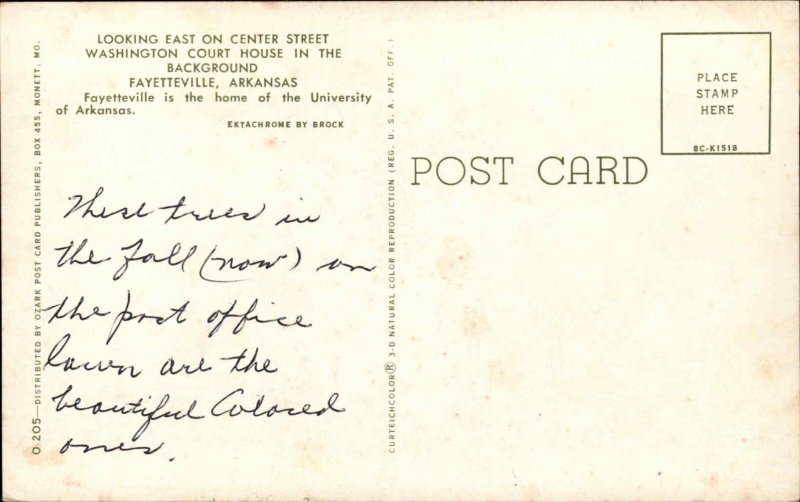 LOOKING EAST ON CENTER STREET
WASHINGTON COURT HOUSE IN THE
BACKGROUND
FAYETTEVILLE, ARKANSAS
Fayetteville is the home of the University
of Arkansas.
EKTACHROME BY BROCK
O-205—DISTRIBUTED BY OZARK POST CARD PUBLISHERS, BOX 455, MONETT, MO.
These trees in
the fall (now) on
the post office
lawn are the
beautiful Colored
ones.
CURTEICHCOLOR® 3-D NATURAL COLOR REPRODUCTION (REG. U. S. A. PAT. OFF.)
POST CARD
PLACE
STAMP
HERE
8C-K1518